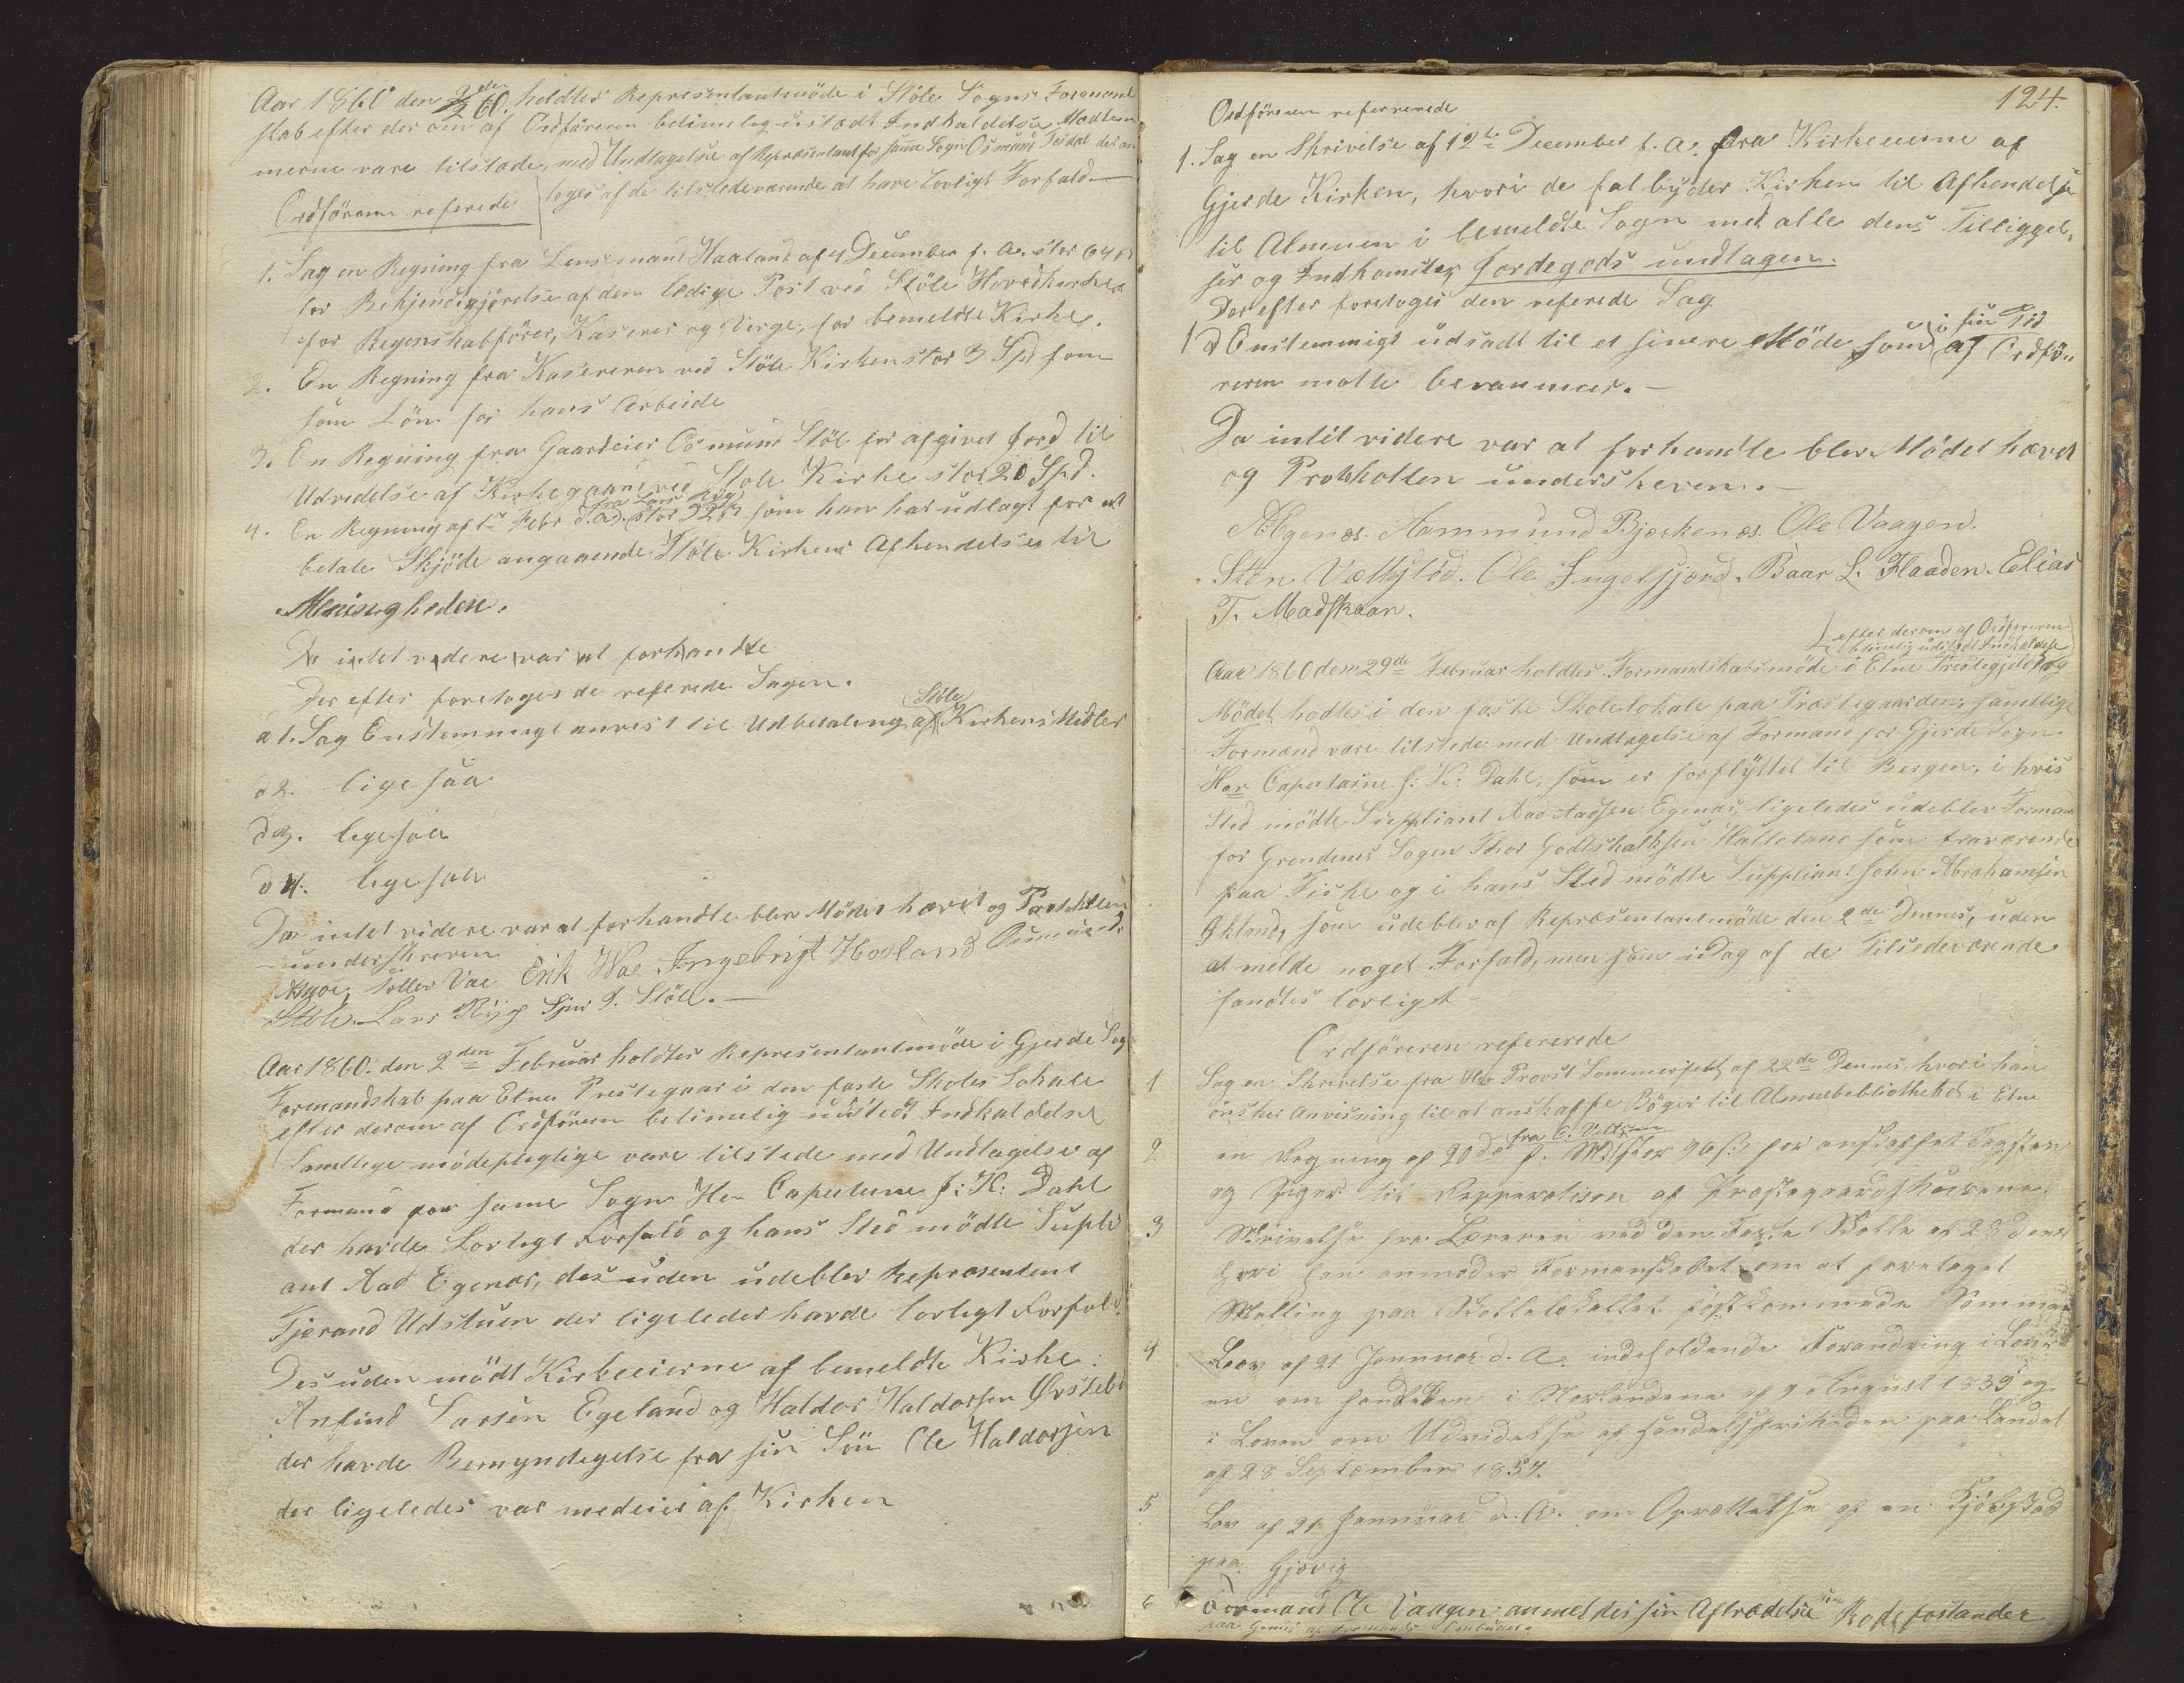 Aar 1860 den 2den/2 60. holdtes Representantmöde i Stöle Sogns Formand
skab efter der om af Ordföreren betimelig udstædt Indkaldelse Medlem
merne vare tilstæde, med Undtagelse af Repræsentant for samme Sogn Osmund Tesdal der an
Ordföreren referede toges af de tilstedeværende at have lovligt Forfald
1. Sag en Regning fra Lensmand Haaland af 4 December f. A. stor 64 ß
for Bekjendtgjörelse af den ledige Post ved Stöle Hovedkirke
for Regnskabförer, Kaserer og Verge, for bemeldte Kirke.
2. En Regning fra Kasereren ved Stöle Kirken stor 3 Spd som
som Lön for hans Arbeide
3. En Regning fra Gaardeier Osmund Stöl for afgivet Jord til
Udvidelse af Kirkegaard ved Stöle Kirke stor 20 Spd.
4. En Regning af 1ste Febr d. A. fra Lars Ryg stor 92 ß som han har udlagt for at
betale Skjöde angaaende Stöle Kirkens Afhendelse til
Menigheden.
Da intet videre var at forhandle
Der efter foretoges de referede Sager.
a 1. Sag Enstemmigt anvist til Udbetaling af Stöle Kirkens Midler
d 2. ligesaa
d 3. ligesaa
d 4. ligesaa
Da intet videre var at forhandle blev Mödet hævet og Protokollen
underskreven
Toller Vae Erik Vae Ingebrigt Hovland Osmund
Stöle. Lars Ryg Sjur J. Stöle.
Aar 1860. den 2den Februar holdtes Representantmöde i Gjerde Sog
Formandskab paa Etne Prestegaar i den faste Skoles Lokale
efter derom af Ordföreren betimelig udstedt Indkaldelse
Samtlige mödepligtige vare tilstede med Undtagelse af
Formand for same Sogn Her Capeteine J: K: Dahl
der havde Lovligt Forfald og hans Sted mödte Supli
ant Aad Egenæs, desuden udeblev Repræsentent
Tjerand Udstuen der ligeledes havde lovligt Forfald.
Desuden mödt Kirkeeierne af bemeldte Kirke:
Anfind Larsen Egeland og Haldor Haldorsen Örstebö
der havde Bemyndigelse fra sin Sön Ole Haldorsen
der ligeledes var medeier af Kirken
124.
Ordföreren refererede
1. Sag en Skrivelse af 12te December f. A. fra Kirkeeierne af
Gjerde Kirken, hvori de falbyder Kirken til Afhendelse
til Almuen i bemeldte Sogn med alle dens Tilliggel,
ser og Indkomster, Jordegods undtagen.
Der efter foretoges den referede Sag
1 d Enstemmigt udsadt til et sinere Möde som i sin Tid af Ordfö,
reren motte berammes.
Da intet videre var at forhandle blev Mödet hævet
og Protokollen underskeven.
A. Egenæs. Aammund Bjerkenæs. Ole Vaagen.
Sten Ole Ingelsjord. Baar L. Flaaden. Elias
T. Madskaar.
efter derom af Ordföreren
betimelig udstedt Indkaldelse
Aar 1860 den 29de Februar holdtes Formandskabsmöde i Etne Prestegjeld og
Mödet hodtes i den faste Skolelokale paa Præstegaarden, samtlige
Formænd vare tilstede med Undtagelse af Formand for Gjerde Sogn
Her Capetaine J: K: Dahl, som er forflyttet til Bergen, i hvis
Sted mödte Suppliant Aad Aadsen Egenæs, ligeledes udeblev Formand
for Grendens Sogen Thor Godtskalksen som fraværende
paa Fiske og i hans Sted mödte Suppliant John Abrahamsen
som udeblev af Repræsentantmöde den 2den Dennes, uden
at melde noget Forfald, men som i Dag af de Tilstedeværende
fandtes lovligt
Ordföreren refererede
1 Sag en Skrivelse fra Her Provst Sommerfeldt af 22de Dennes hvori han
önsker Anvisning til at anskaffe Böger til Almuebebliotheket i Etne
2 en Regning af 20de fra E. stor 96 ß for anskaffet Tagsten
og Spiger til Repperation af Præstegaardshusene.
3 Skrivelse fra Læreren ved den Faste Skolle af 28 dens
hvori han anmoder Formanskabet om at foretaget
Malling paa Skollelokallet förstkommende Sommer
4 Lov af 21 Januar d. A. indeholdende Forandring i Lov
en om Handelen i Norlandene af 9 August 1839 og
i Loven om Udvidelse af Handelsfriheden paa Landet
af 28 September 1857.
5 Lov af 21 Januar d. A. om Oprættelse af en Kjöbstad
paa Gjövig
6 Formand Ole Vaagen anmeldes sin Aftrædelse som Rodeforstander
paa Grund af Formands Ombudet.